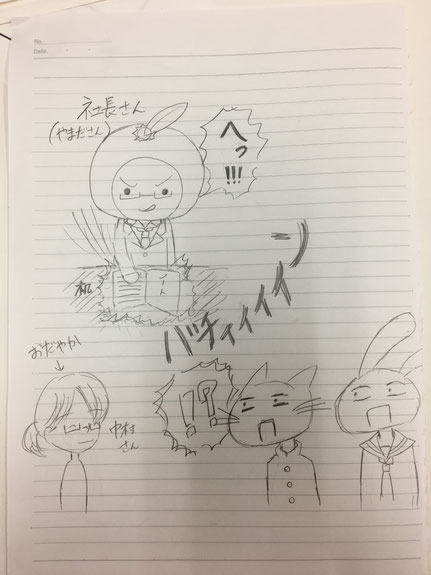 No.
Date.
社長さん
(やまださん)
へっ
!!!
机
ノート
バチィィィィーン
おだやか
↓
中村
さん
!?!?